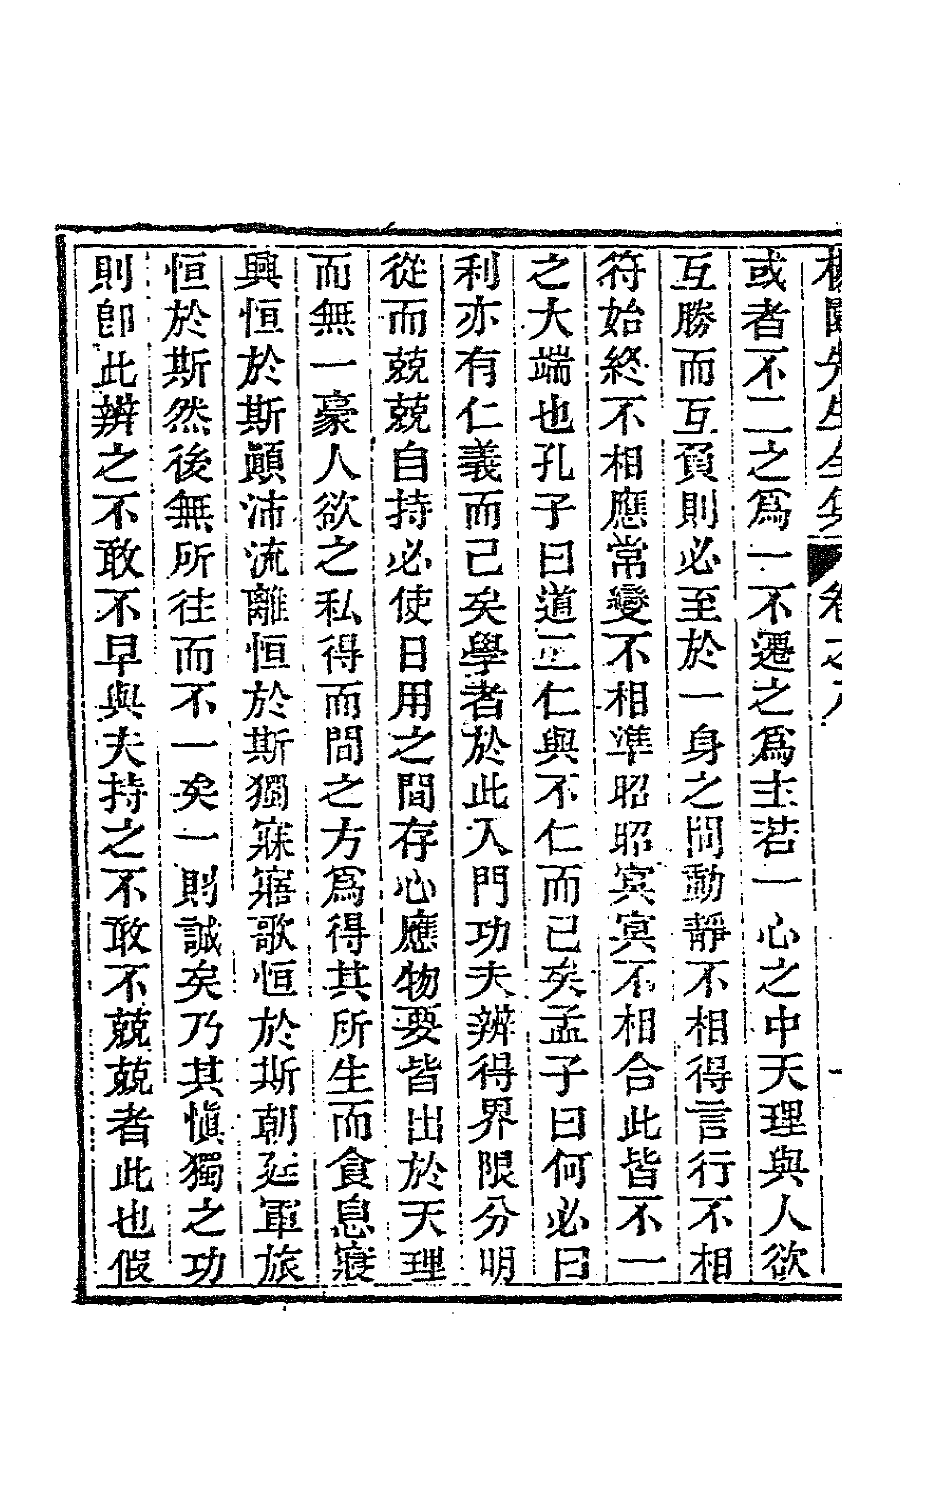 楊園先生全集 卷之八
或者不二之爲一不遷之爲主若一心之中天理與人欲
互勝而互負則必至於一身之間動靜不相得言行不相
符始終不相應常變不相準昭昭冥冥不相合此皆不一
之大端也孔子曰道二仁與不仁而已矣孟子曰何必曰
利亦有仁義而已矣學者於此入門功夫辨得界限分明
從而兢兢自持必使日用之間存心應物要皆出於天理
而無一豪人欲之私得而間之方爲得其所生而食息寢
興恒於斯顚沛流離恒於斯獨寐寤歌恒於斯朝廷軍旅
恒於斯然後無所往而不一矣一則誠矣乃其愼獨之功
則卽此辨之不敢不早與夫持之不敢不兢兢者此也假